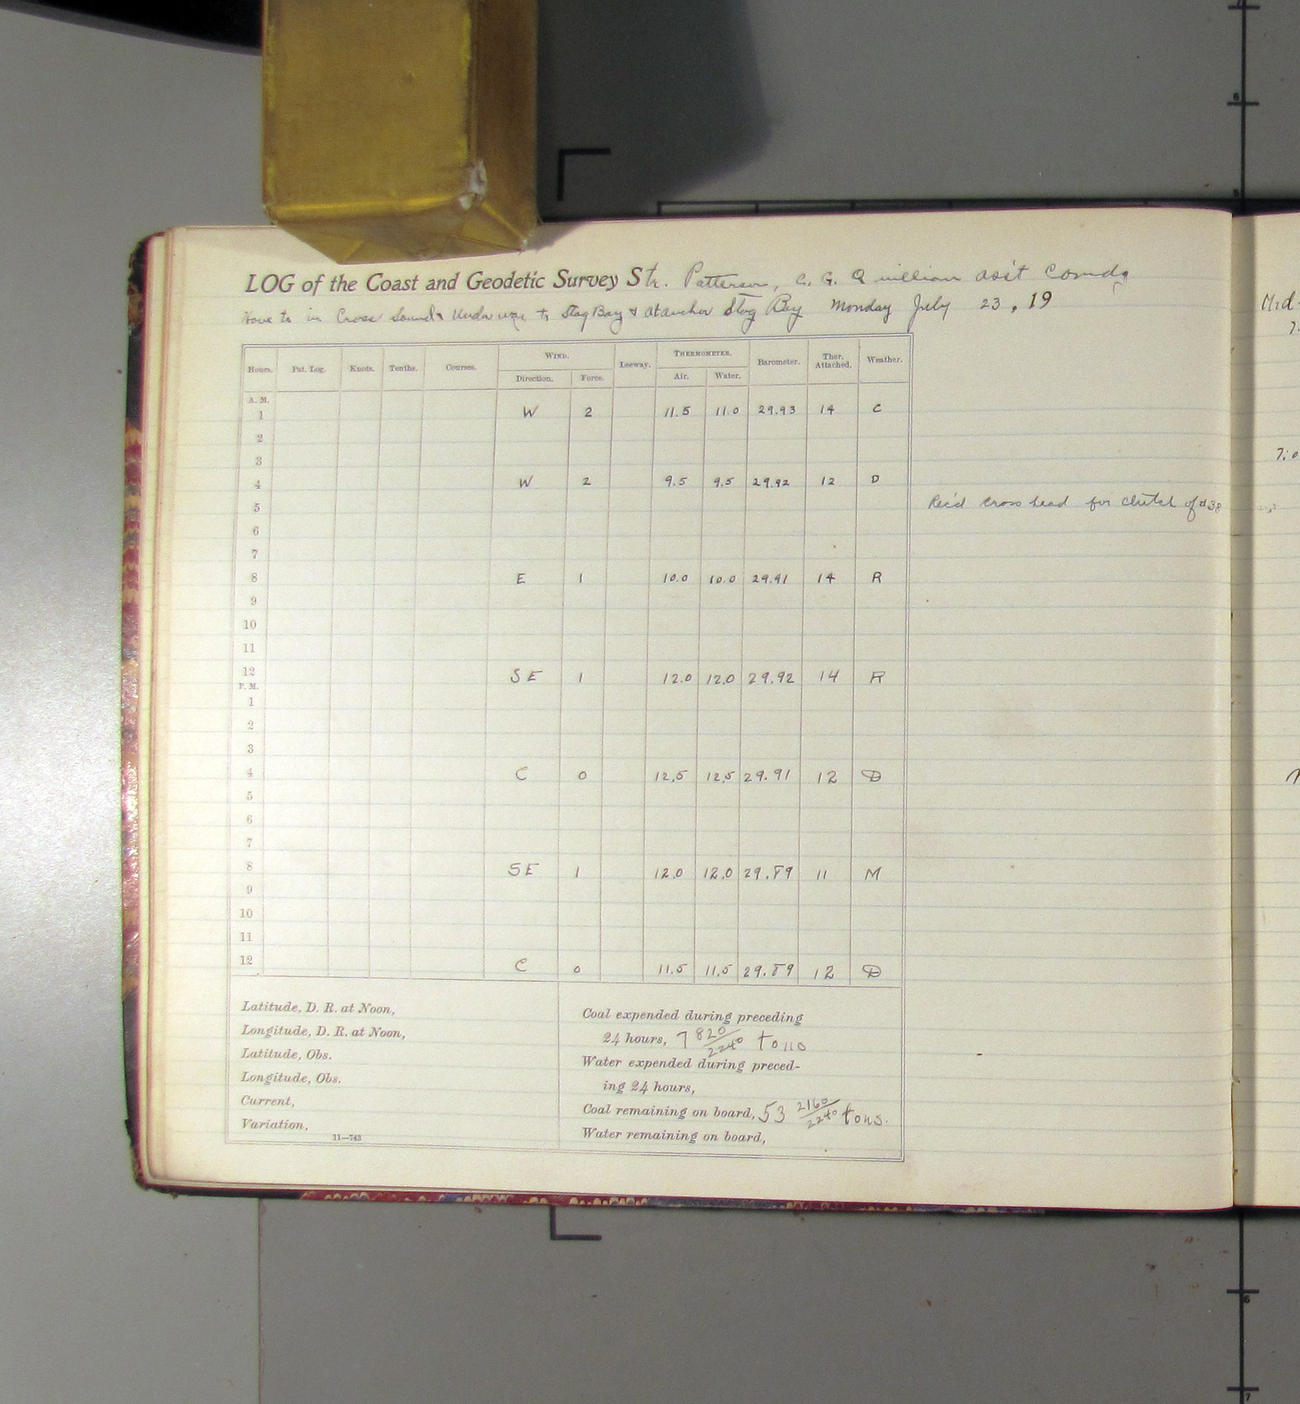 LOG of the Coast and Geodetic Survey Str. Patterson, C. G. Quillian ass't Comdg
Hove to in Cross Sound & Underway to Stag Bay & at anchor Stag Bay Monday July 23, 19
Hours. Pat. Log. Knots. Tenths. Courses. WIND. Leeway. THERMOMETER. Barometer. Ther. Attached. Weather.
Direction. Force. Air. Water.
A. M.
1 W 2 11.5 11.0 29.93 14 C
2
3
4 W 2 9.5 9.5 29.92 12 D
5 Rec'd Cross head for clutch of #38
6
7
8 E 1 10.0 10.0 29.91 14 R
9
10
11
12 SE 1 12.0 12.0 29.92 14 R
P. M.
1
2
3
4 C 0 12.5 12.5 29.91 12 D
5
6
7
8 SE 1 12.0 12.0 29.89 11 M
9
10
11
12 C 0 11.5 11.5 29.89 12 D
Latitude, D. R. at Noon,
Longitude, D. R. at Noon,
Latitude, Obs.
Longitude, Obs.
Current,
Variation,
11—743
Coal expended during preceding
24 hours, 7 820/2240 tons
Water expended during preced-
ing 24 hours,
Coal remaining on board, 53 2160/2240 tons.
Water remaining on board,
Mid